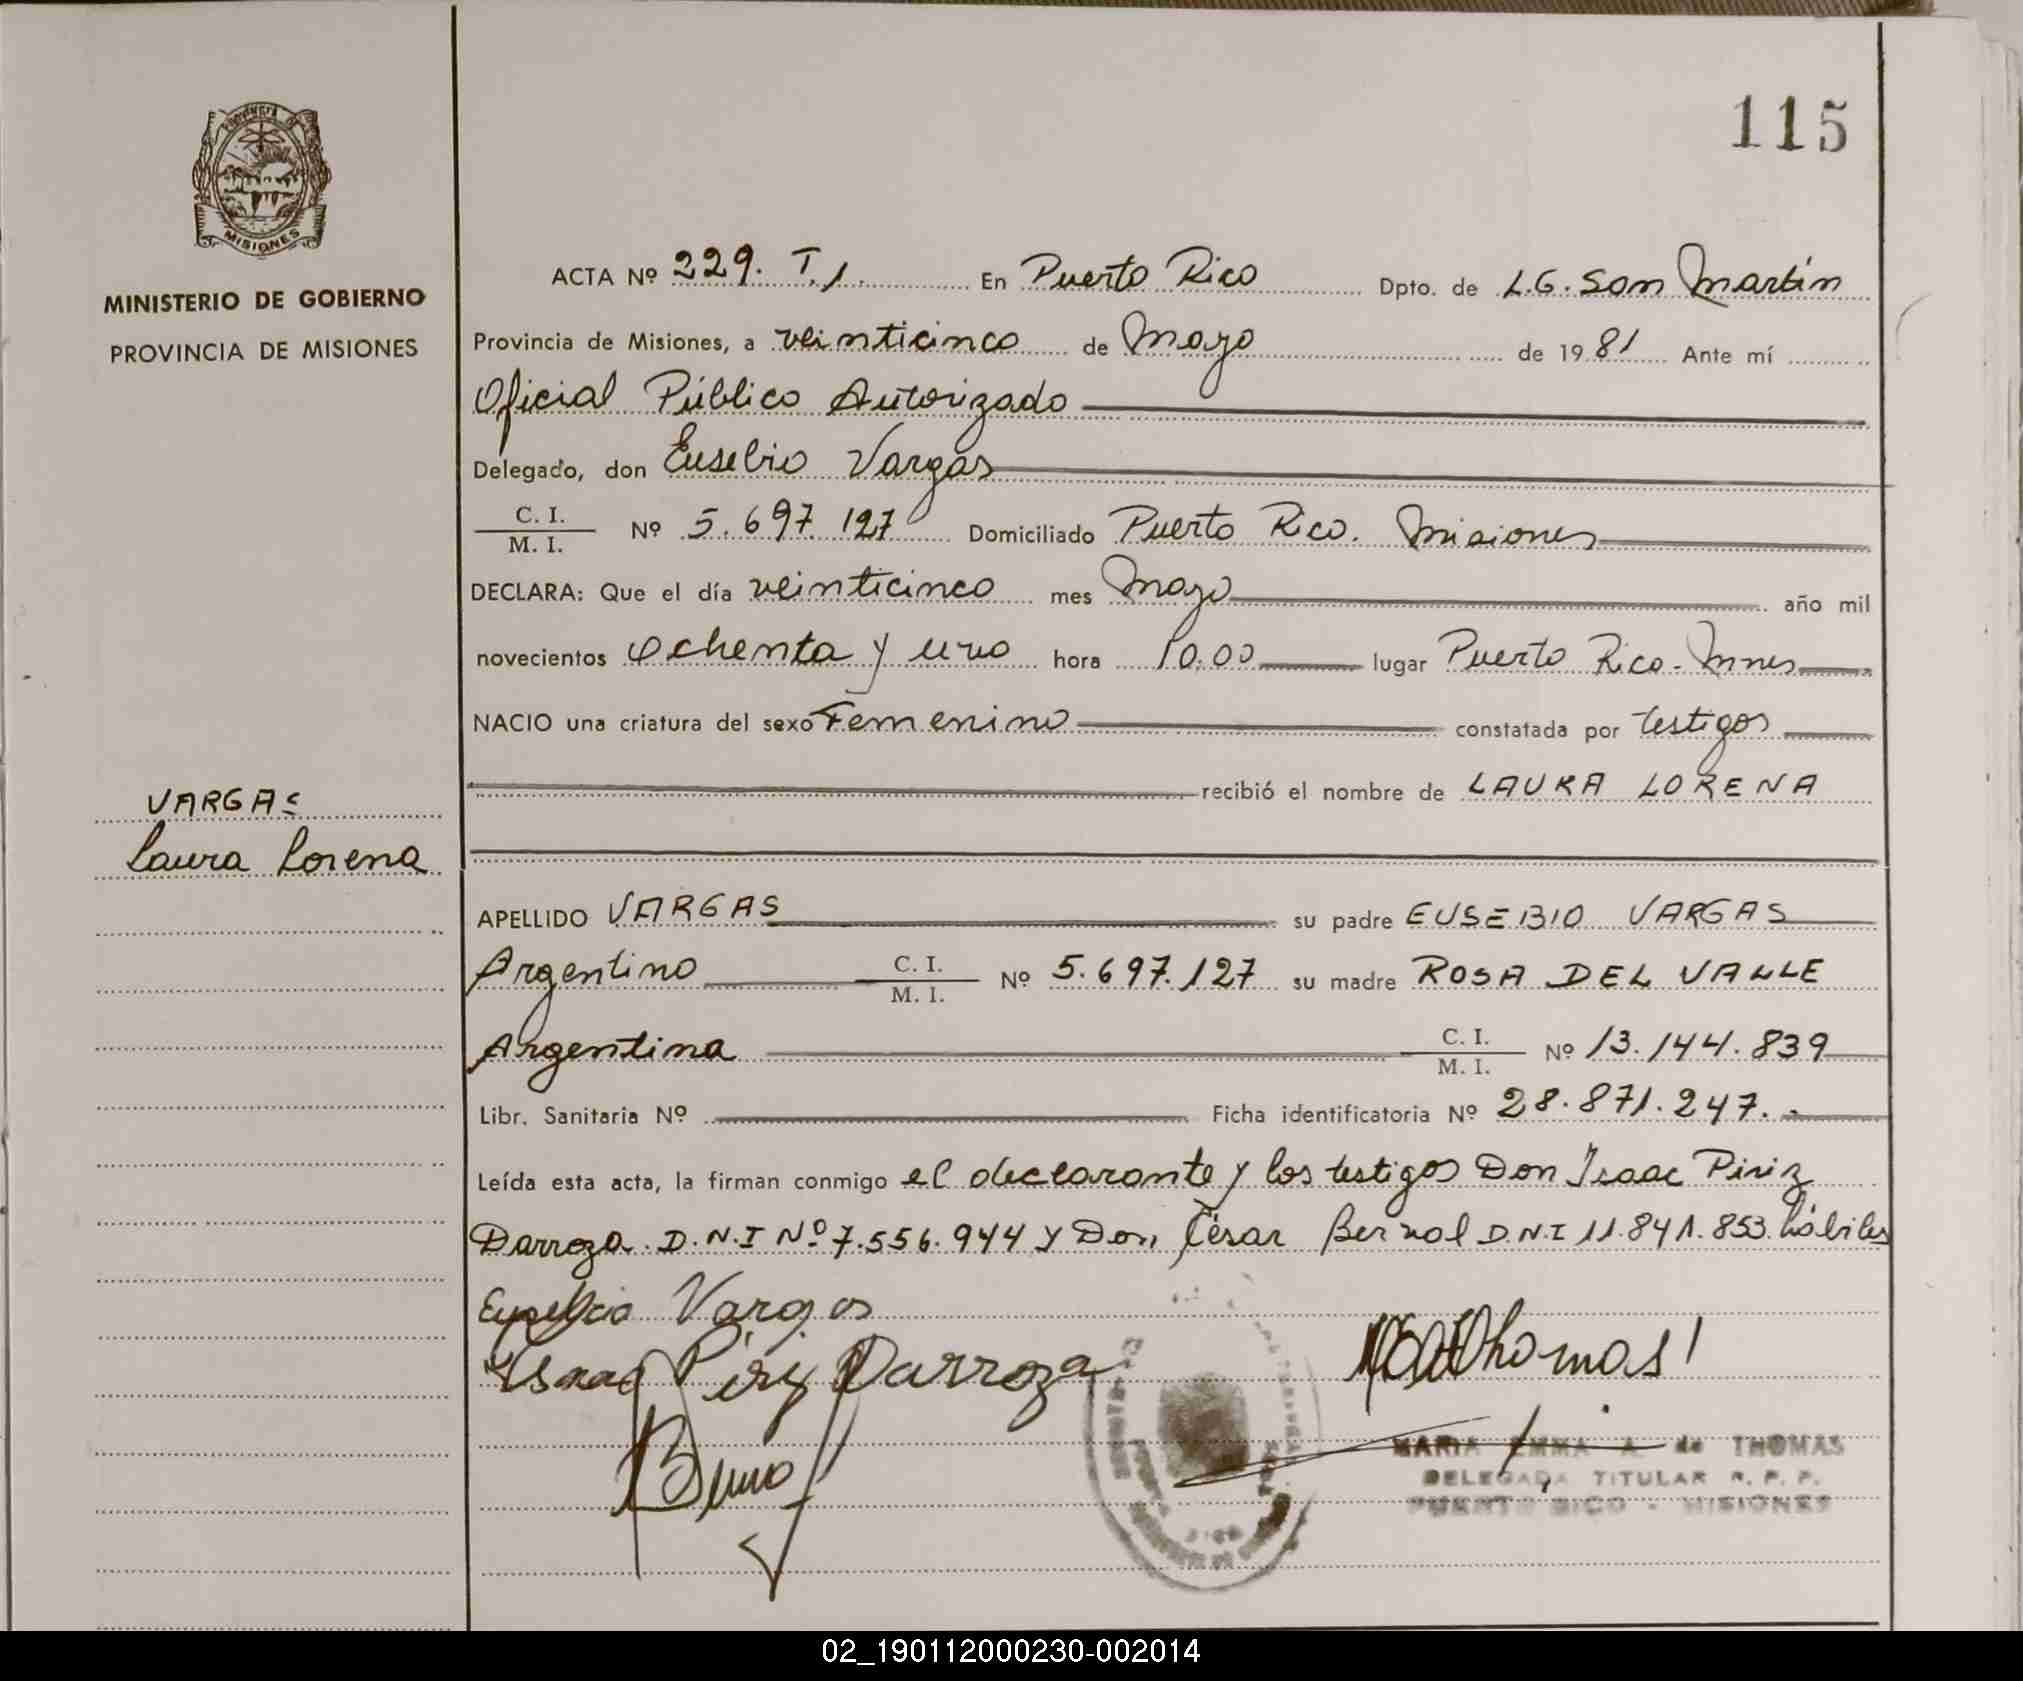 115
MISIONES
MINISTERIO DE GOBIERNO
PROVINCIA DE MISIONES
VARGAS
Laura Lorena
ACTA Nº 229. T.1. En Puerto Rico Dpto. de L.G. San Martín
Provincia de Misiones, a veinticinco de Mayo de 1981 Ante mí
Oficial Público Autorizado
Delegado, don Eusebio Vargas
C. I.
M. I. Nº 5.697.127 Domiciliado Puerto Rico. Misiones
DECLARA: Que el día veinticinco mes Mayo año mil
novecientos Ochenta y uno hora 10.00 lugar Puerto Rico - Mnes
NACIO una criatura del sexo Femenino constatada por testigos
recibió el nombre de LAURA LORENA
APELLIDO VARGAS su padre EUSEBIO VARGAS
Argentino C. I. M. I. Nº 5.697.127 su madre ROSA DEL VALLE
Argentina C. I. M. I. Nº 13.144.839
Libr. Sanitaria Nº Ficha identificatoria Nº 28.871.247.-
Leída esta acta, la firman conmigo el declarante y los testigos Don Isaac Piriz
Darroza. D.N.I Nº 7.556.944 y Don César Bernal D.N.I 11.841.853 hábiles
Eusebio Vargas
Isaac Piriz Darroza
Thomas
MARIA EMMA A. de THOMAS
DELEGADA TITULAR R. P. P.
PUERTO RICO - MISIONES
02_190112000230-002014